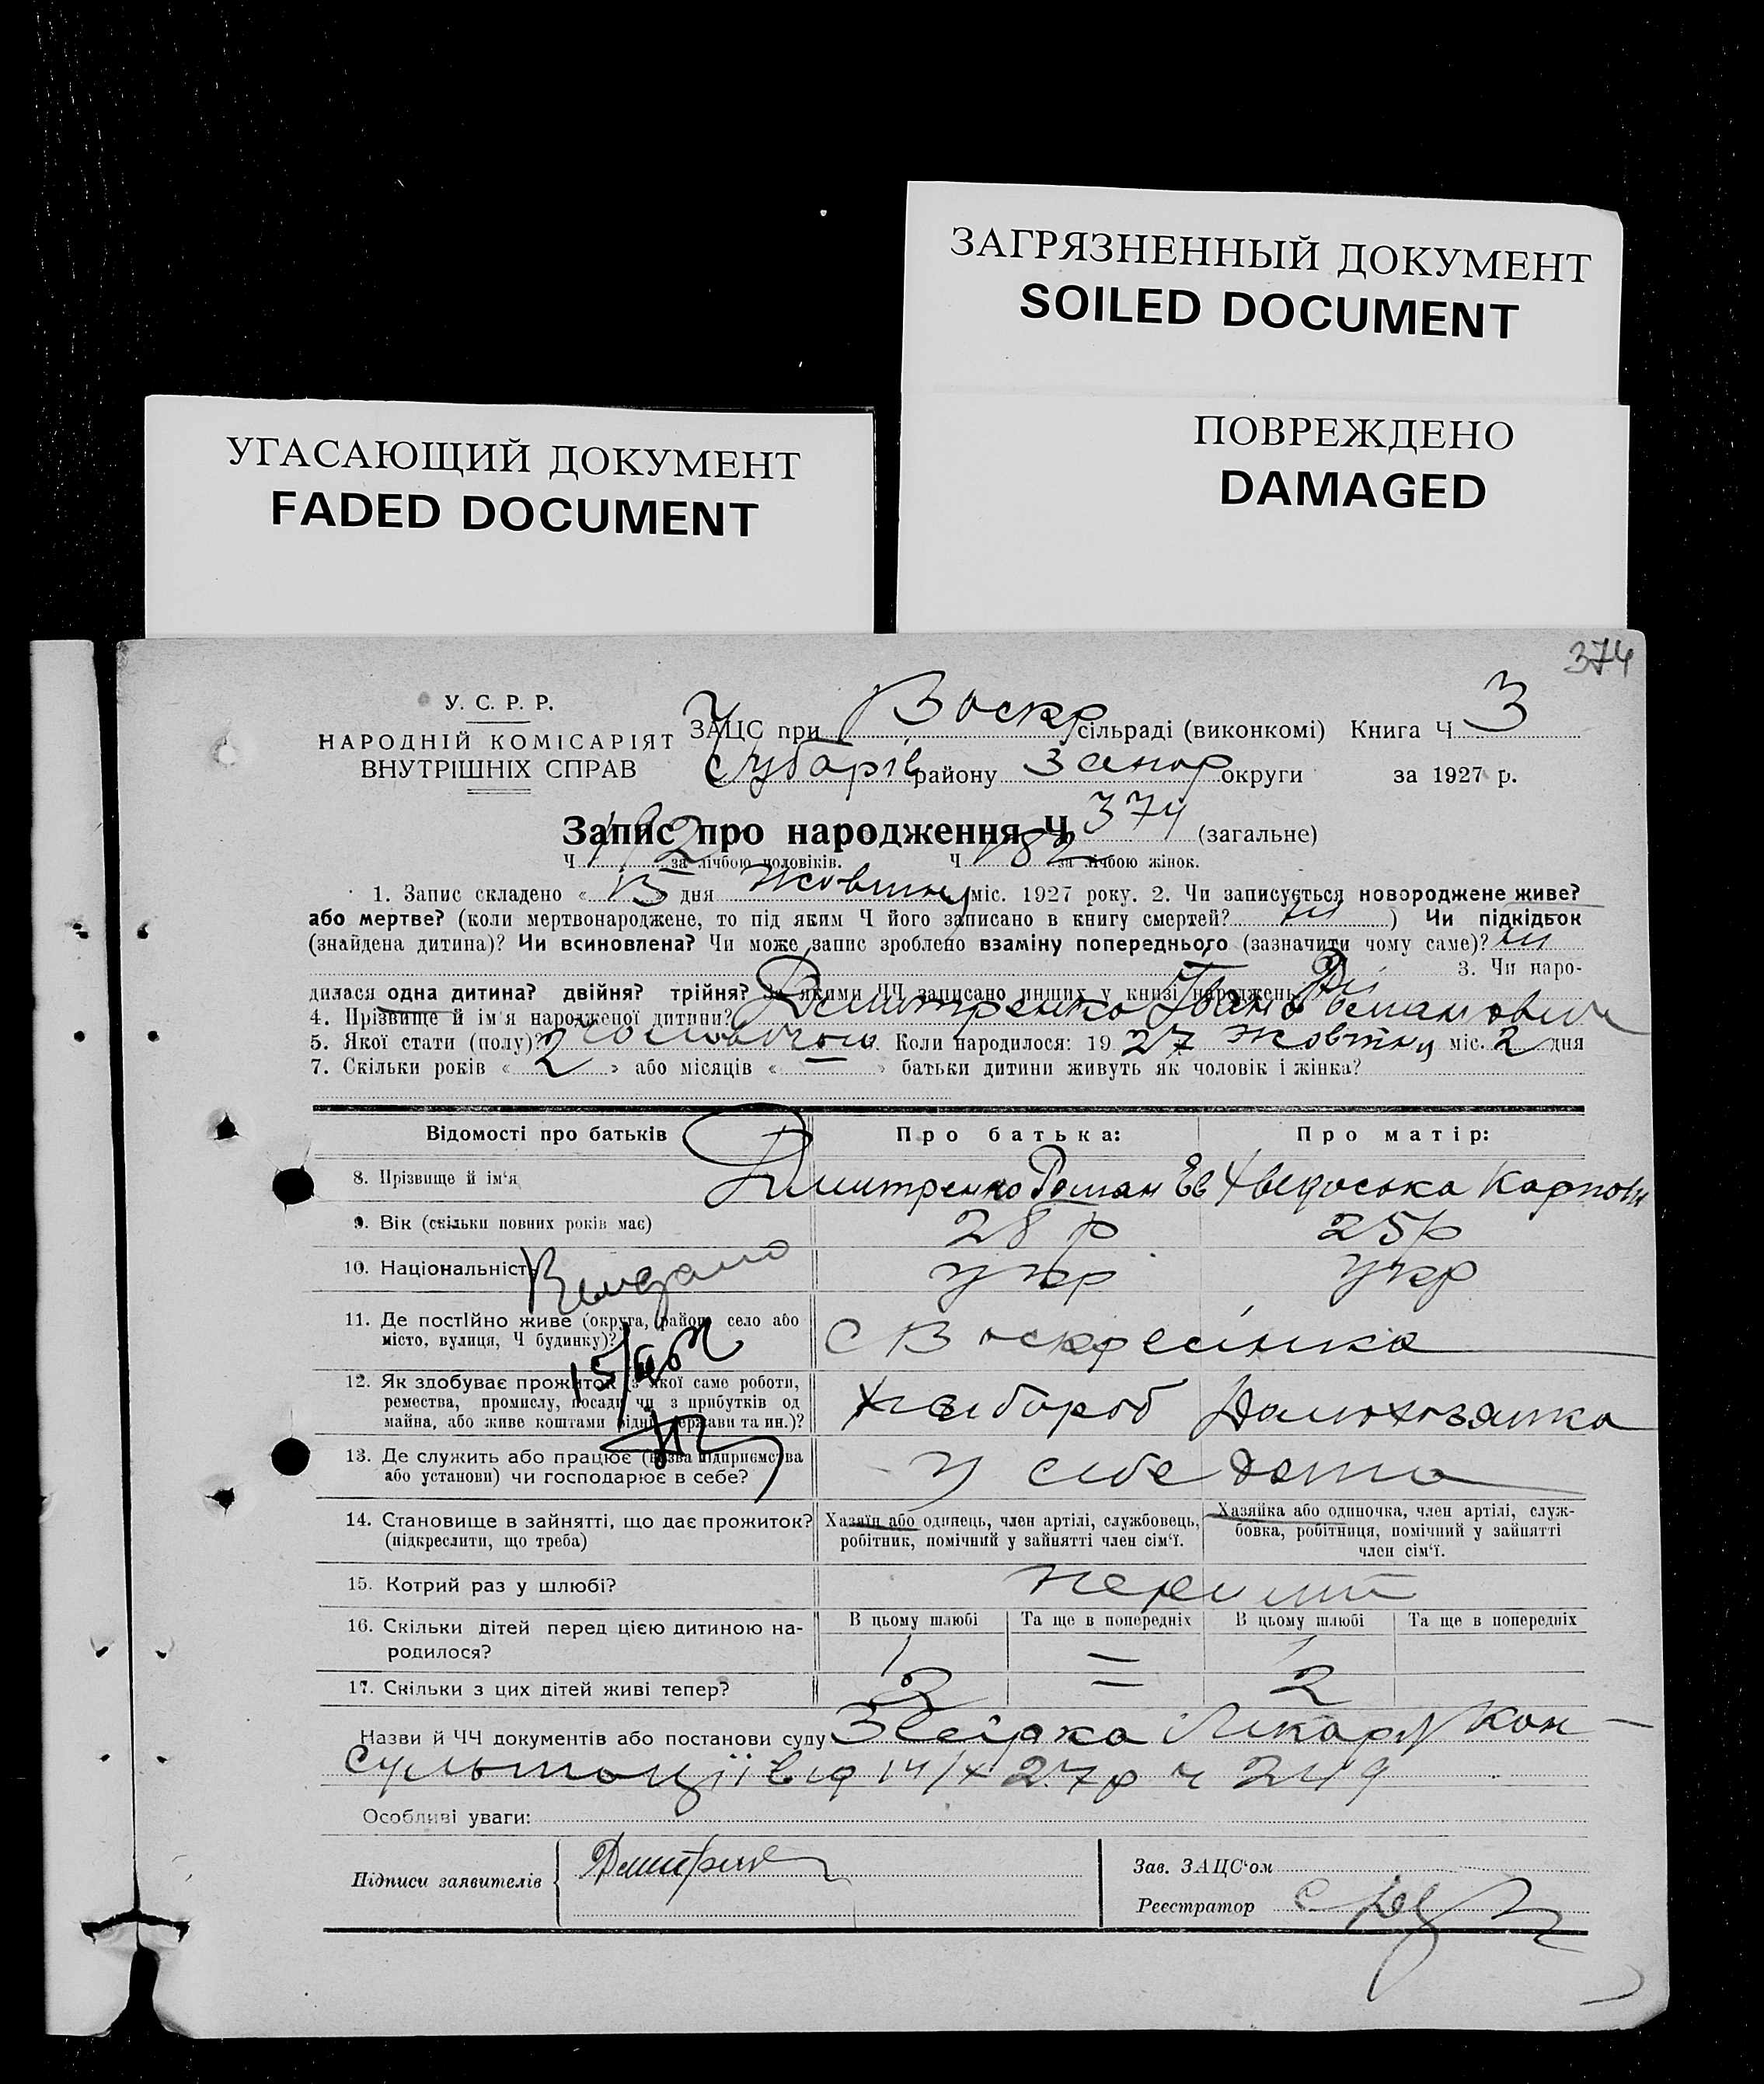 ЗАГРЯЗНЕННЫЙ ДОКУМЕНТ
SOILED DOCUMENT
ПОВРЕЖДЕНО
DAMAGED
УГАСАЮЩИЙ ДОКУМЕНТ
FADED DOCUMENT
374
У. С. Р. Р.
НАРОДНІЙ КОМІСАРІЯТ
ВНУТРІШНІХ СПРАВ
ЗАЦС при Воскр сільраді (виконкомі) Книга Ч 3
району Запор округи за 1927 р.
Запис про народження Ч 374 (загальне)
Ч 192 за лічбою чоловіків. Ч 182 за лічбою жінок.
1. Запис складено « 15 » дня Жовтня міс. 1927 року. 2. Чи записується новороджене живе?
або мертве? (коли мертвонароджене, то під яким Ч його записано в книгу смертей? ні ) Чи підкідьок
(знайдена дитина)? Чи всиновлена? Чи може запис зроблено взаміну попереднього (зазначити чому саме)? ні
3. Чи наро-
дилася одна дитина? двійня? трійня? За якими ЧЧ записано инших у книзі народжень?
4. Прізвище й ім'я народженої дитини? Дмитренко Іван Романович
5. Якої стати (полу)? Коли народилося: 19 27 Жовтня міс. 2 дня
7. Скільки років « 2 » або місяців « — » батьки дитини живуть як чоловік і жінка?
Відомості про батьків Про батька: Про матір:
8. Прізвище й ім'я Дмитренко Роман Ев Хведоська Карповн
9. Вік (скільки повних років має) 28 р 25 р
10. Національність укр укр
Видано
11. Де постійно живе (округа, район, село або
місто, вулиця, Ч будинку)? С Воскресінка
12. Як здобуває прожиток (з якої саме роботи,
ремества, промислу, посади чи з прибутків од
майна, або живе коштами рідні, держави та ин.)? Хлібороб Домохозяйка
13. Де служить або працює (назва підприємства
або установи) чи господарює в себе? У себе дома
14. Становище в зайнятті, що дає прожиток?
(підкреслити, що треба)
Хазяїн або одинець, член артілі, службовець,
робітник, помічний у зайнятті член сім'ї.
Хазяйка або одиночка, член артілі, служ-
бовка, робітниця, помічний у зайнятті
член сім'ї.
15. Котрий раз у шлюбі? перший
16. Скільки дітей перед цією дитиною на-
родилося?
В цьому шлюбі Та ще в попередніх В цьому шлюбі Та ще в попередніх
1 — 1
17. Скільки з цих дітей живі тепер? 2 — 2
Назви й ЧЧ документів або постанови суду Лікар Кон-
сультації від 14/X 27р ч 249
Особливі уваги:
Підписи заявителів Дмитренко
Зав. ЗАЦС'ом
Реєстратор